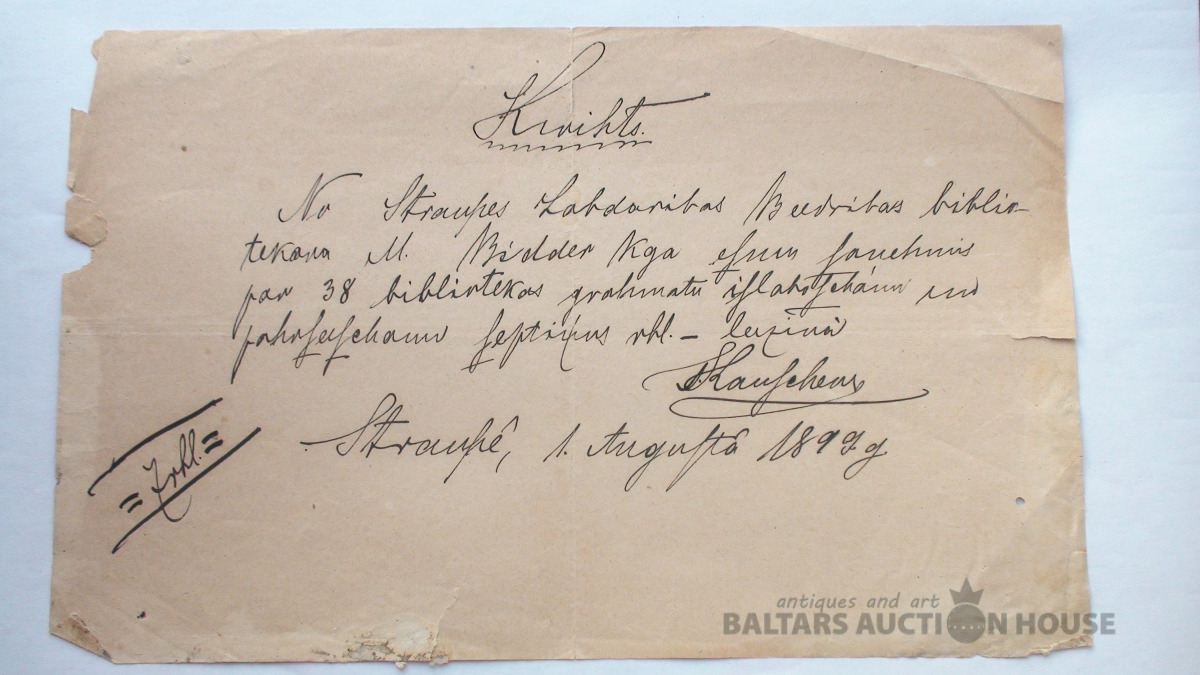 Kwihts.
No Straupes Labdaribas Beedribas biblio-
tekara M. Bidder kga esmu saņehmis
par 38 bibliotekas grahmatu islaboschanu un
pahrseeschanu septiņus rbl. —
Straupê, 1. Augustâ 1897 g
= 7 rbl. =
antiques and art
BALTARS AUCTION HOUSE